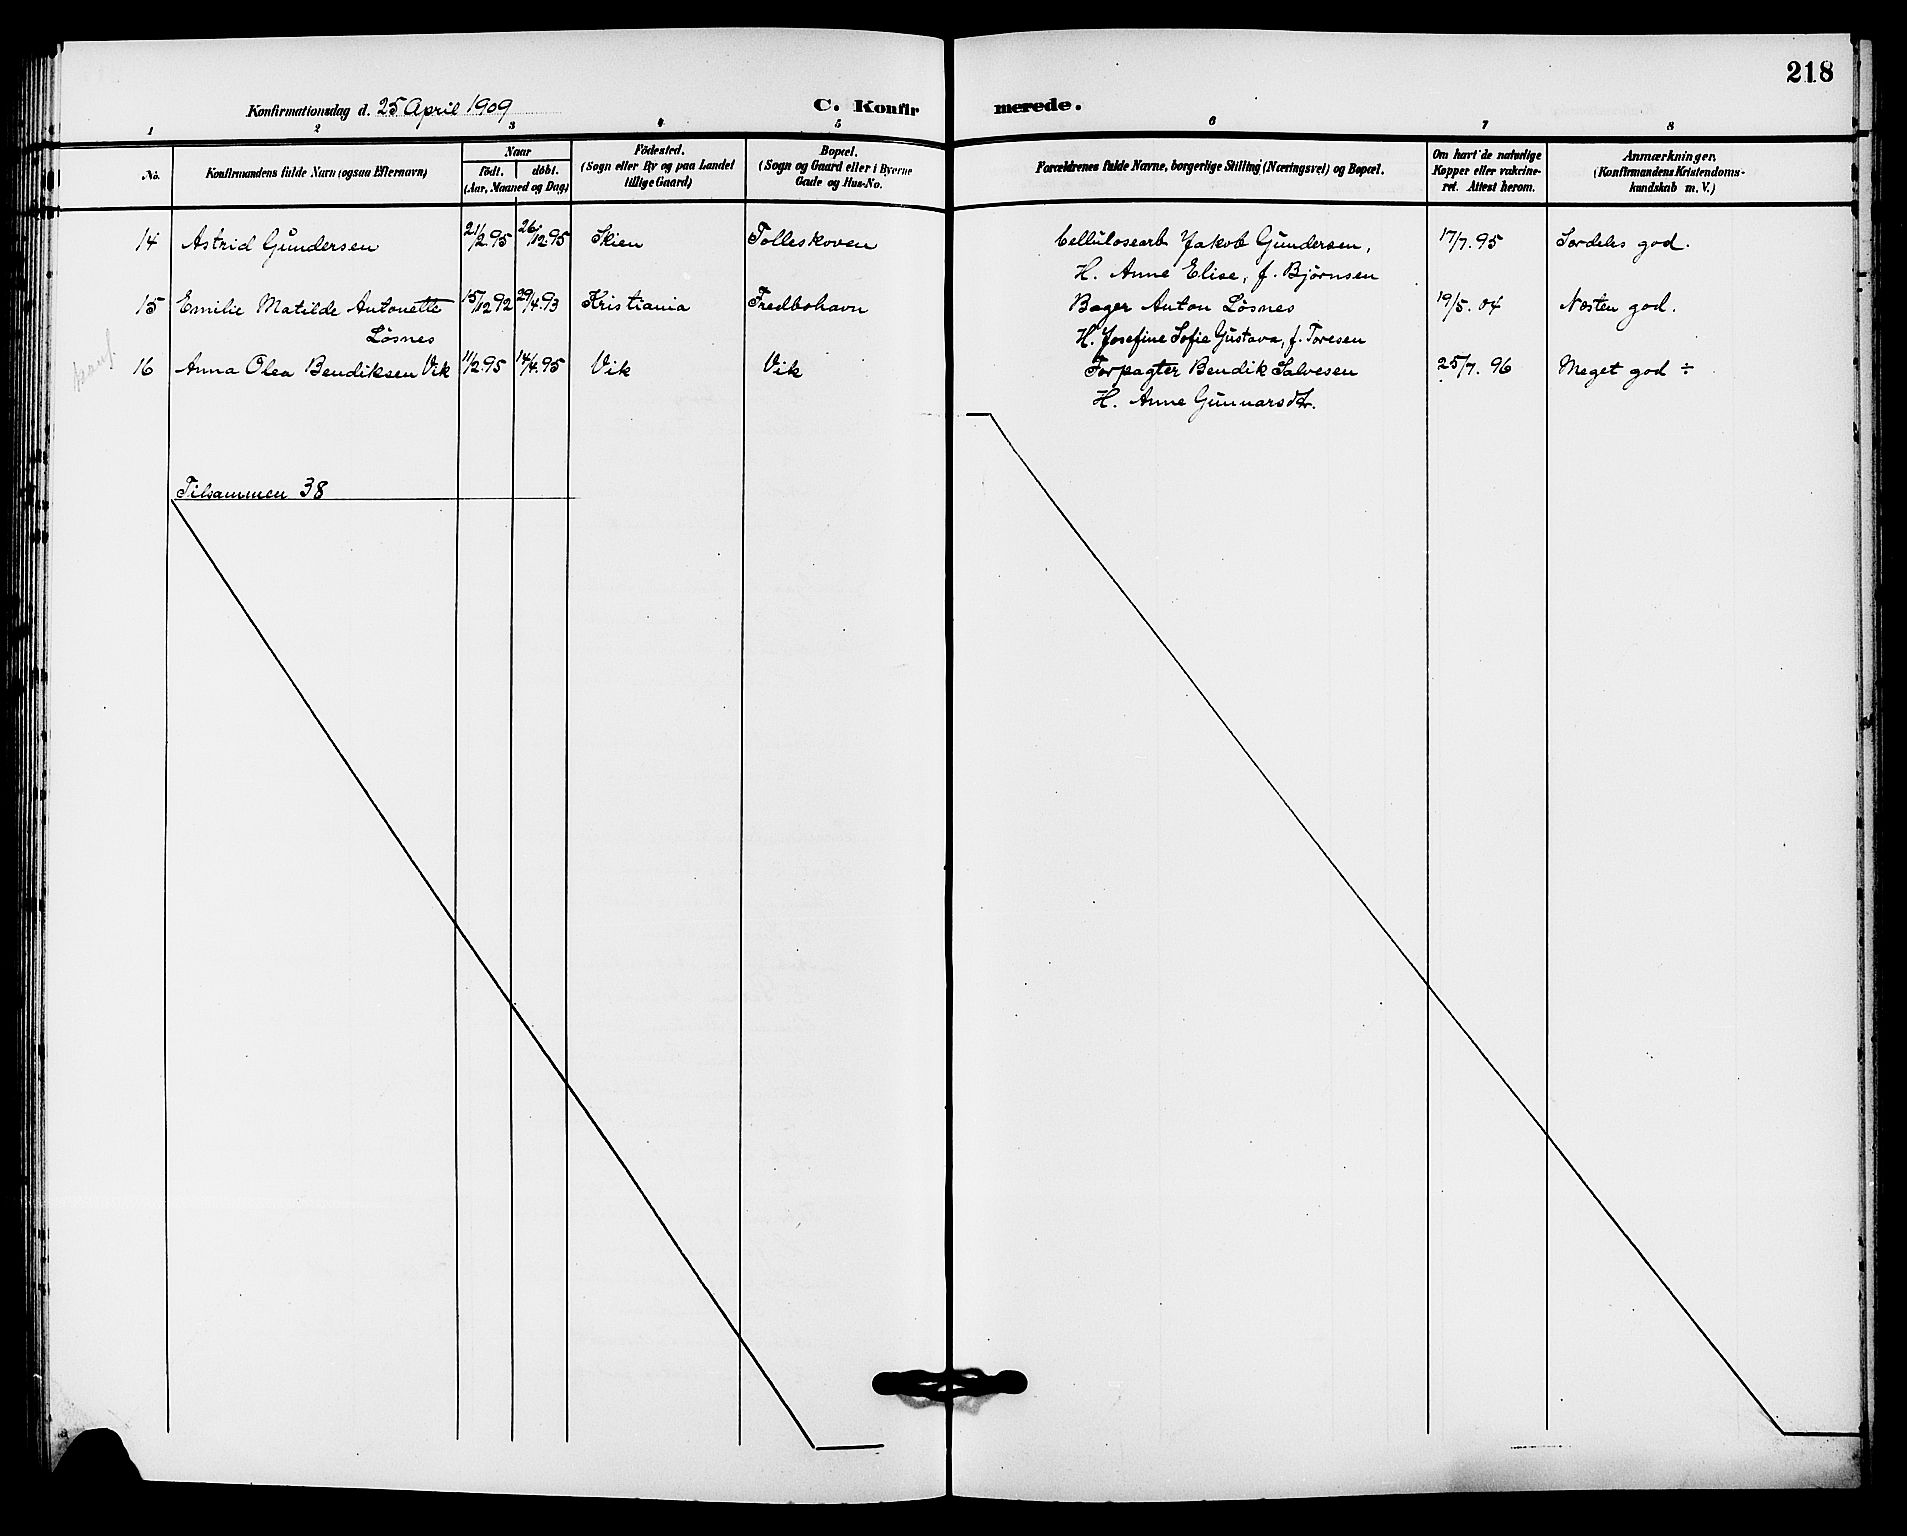 218
Konfirmationsdag d. 25 April 1909
C. Konfirmerede.
1 2 3 4 5 6 7 8
No.
Konfirmandens fulde Navn (ogsaa Efternavn)
Naar
født. døbt.
(Aar, Maaned og Dag)
Fødested.
(Sogn eller By og paa Landet
tillige Gaard)
Bopæl.
(Sogn og Gaard eller i Byerne
Gade og Hus-No.
Forældrenes fulde Navne, borgerlige Stilling (Næringsvei) og Bopæl.
Om havt de naturlige
Kopper eller vakcine-
ret. Attest herom.
Anmærkninger,
(Konfirmandens Kristendoms-
kundskab m. V.)
14 Astrid Gundersen 21/2.95 26/12.95 Skien Tolleskoven Cellulosearb Jakob Gundersen, 17/7.95 Særdeles god.
H. Anne Elise, f. Bjørnsen
15 Emilie Matilde Antonette 15/12 92 29/4.93 Kristiania Fredbohavn Bager Anton Løsnes 19/5.04 Næsten god.
Løsnes H. Josefine Sofie Gustava, f. Toresen
16 Anna Olea Bendiksen Vik 11/2.95 14/4.95 Vik Vik Forpagter Bendik Salvesen 25/7.96 Meget god ÷
H. Anne Gunnarsdtr.
Tilsammen 38